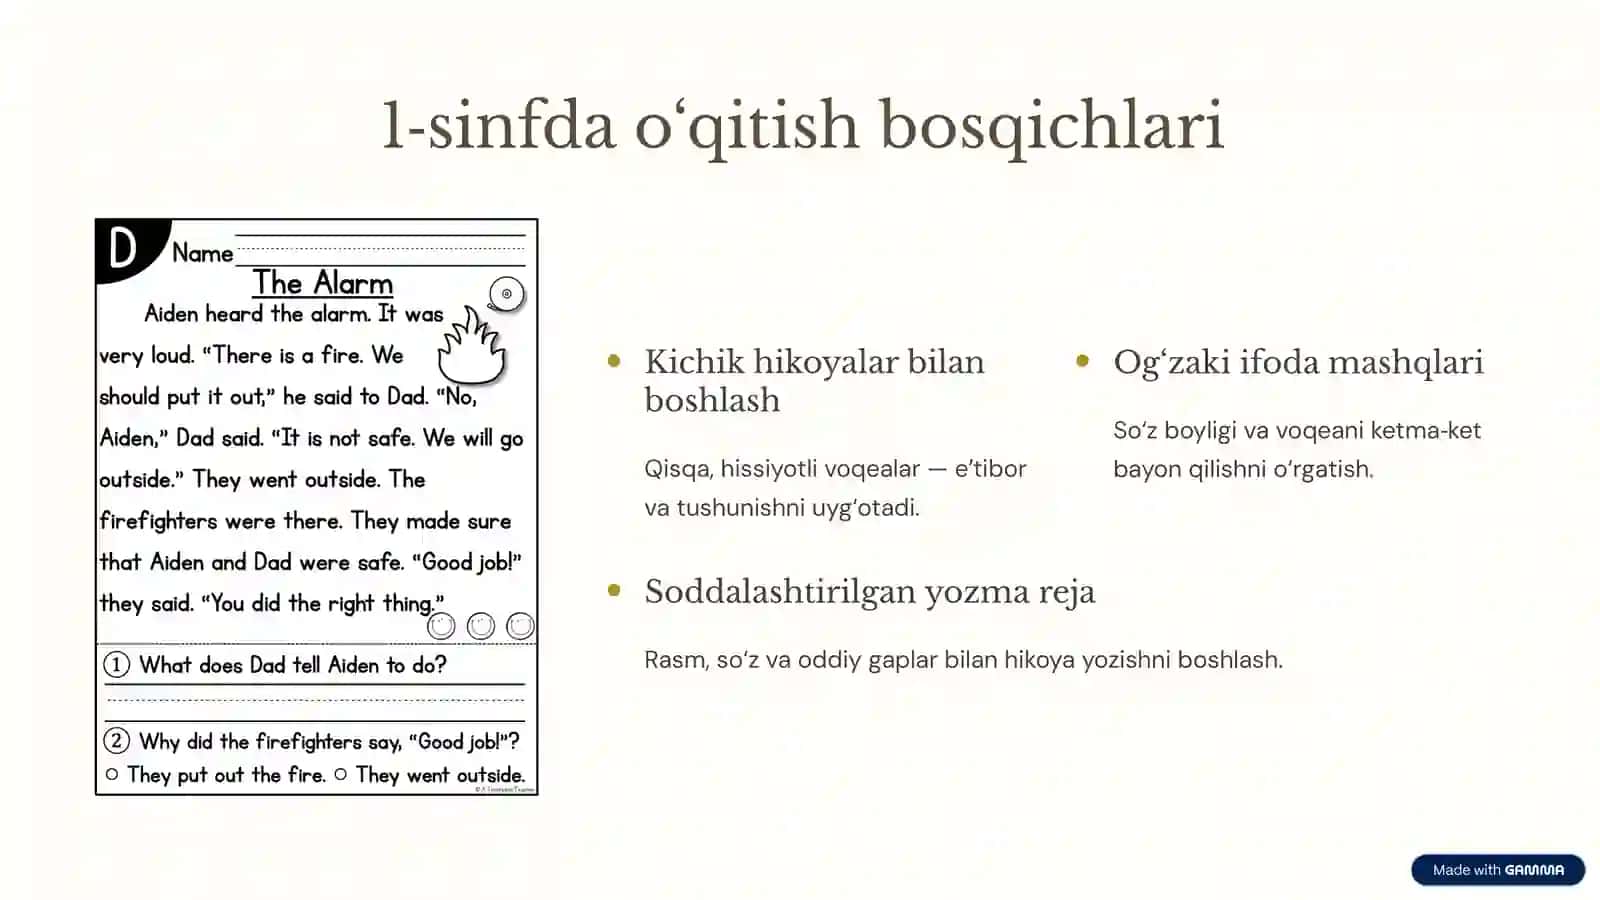 1-sinfda o‘qitish bosqichlari
D
Name
The Alarm
Aiden heard the alarm. It was
very loud. “There is a fire. We
should put it out,” he said to Dad. “No,
Aiden,” Dad said. “It is not safe. We will go
outside.” They went outside. The
firefighters were there. They made sure
that Aiden and Dad were safe. “Good job!”
they said. “You did the right thing.”
1 What does Dad tell Aiden to do?
2 Why did the firefighters say, “Good job!”?
They put out the fire. They went outside.
Kichik hikoyalar bilan
boshlash
Qisqa, hissiyotli voqealar — e’tibor
va tushunishni uyg‘otadi.
Og‘zaki ifoda mashqlari
So‘z boyligi va voqeani ketma-ket
bayon qilishni o‘rgatish.
Soddalashtirilgan yozma reja
Rasm, so‘z va oddiy gaplar bilan hikoya yozishni boshlash.
Made with GAMMA